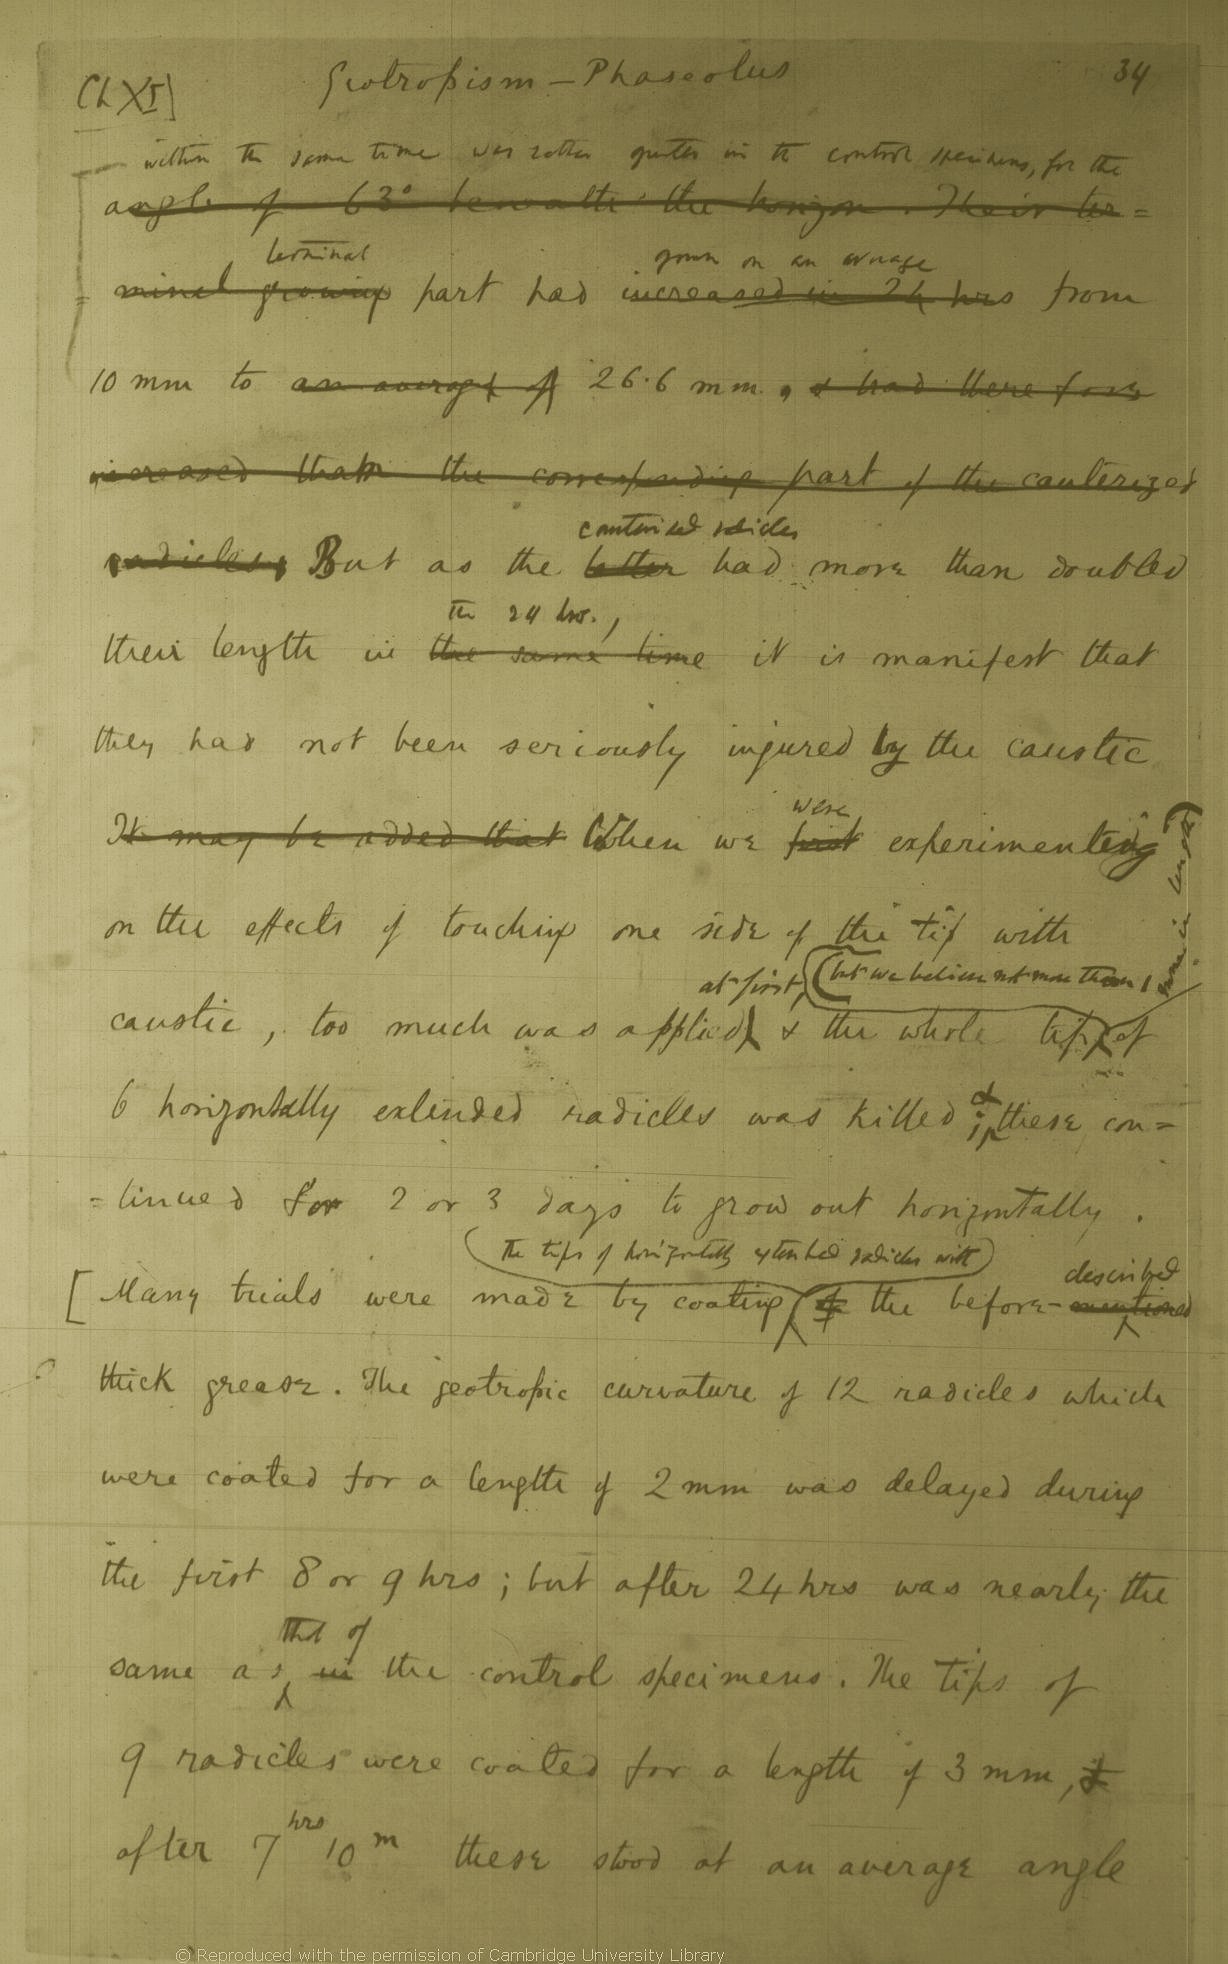 Ch XI]
Geotropism — Phaseolus
34
within the same time was rather greater in the control specimens, for the
angle of 63° beneath the horizon. Their ter=
terminal
grown on an average
=minal growing part had increased in 24 hrs from
10 mm to an average of 26.6 mm, & had therefore
increased than the corresponding part of the cauterized
cauterised radicles
radicles; But as the latter had more than doubled
the 24 hrs.,
their length in the same time it is manifest that
they had not been seriously injured by the caustic
were
It may be added that When we first experimenting
on the effects of touching one side of the tip with
at first, (but we believe not more than 1 mm in length)
caustic, too much was applied & the whole tip of
6 horizontally extended radicles was killed; & these con=
=tinued for 2 or 3 days to grow out horizontally.
the tips of horizontally extended radicles with
described
[Many trials were made by coating the before-mentioned
thick grease. The geotropic curvature of 12 radicles which
were coated for a length of 2 mm was delayed during
the first 8 or 9 hrs; but after 24 hrs was nearly the
that of
same as in the control specimens. The tips of
9 radicles were coated for a length of 3 mm, &
after 7 hrs 10 m these stood at an average angle
© Reproduced with the permission of Cambridge University Library